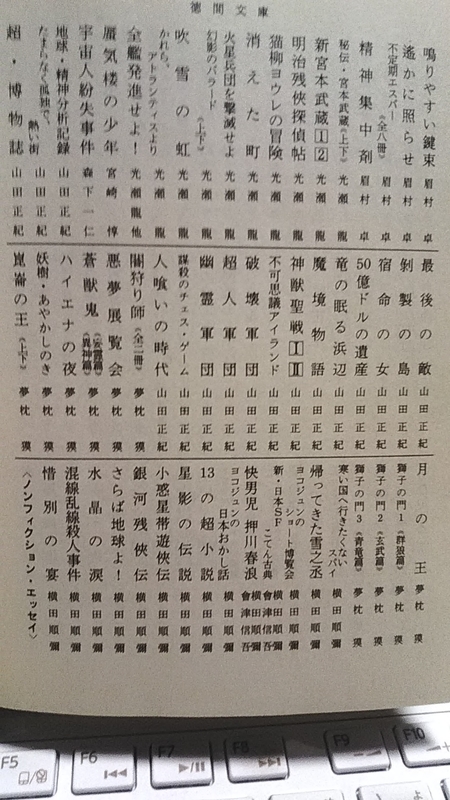 徳間文庫
鳴りやすい鍵束 眉村卓
遙かに照らせ 眉村卓
不定期エスパー〈全八冊〉 眉村卓
精神集中剤 眉村卓
秘伝・宮本武蔵〈上下〉 光瀬龍
新宮本武蔵1 2 光瀬龍
明治残侠探偵帖 光瀬龍
猫柳ヨウレの冒険 光瀬龍
消えた町 光瀬龍
火星兵団を撃滅せよ 光瀬龍
幻影のバラード〈上下〉 光瀬龍
吹雪の虹 光瀬龍
かれら、アトランティスより 光瀬龍
全艦発進せよ! 光瀬龍他
蜃気楼の少年 宮崎惇
宇宙人紛失事件 森下一仁
地球・精神分析記録 山田正紀
たまらなく孤独で、熱い街 山田正紀
超・博物誌 山田正紀
最後の敵 山田正紀
剝製の島 山田正紀
宿命の女 山田正紀
50億ドルの遺産 山田正紀
竜の眠る浜辺 山田正紀
魔境物語 山田正紀
神獣聖戦I II 山田正紀
不可思議アイランド 山田正紀
破壊軍団 山田正紀
超人軍団 山田正紀
幽霊軍団 山田正紀
謀殺のチェス・ゲーム 山田正紀
人喰いの時代 山田正紀
闇狩り師〈全二冊〉 夢枕獏
悪夢展覧会 夢枕獏
蒼獣鬼 夢枕獏
ハイエナの夜 夢枕獏
妖樹・あやかしのき 夢枕獏
崑崙の王〈上下〉 夢枕獏
月の王 夢枕獏
獅子の門1〈群狼篇〉 夢枕獏
獅子の門2〈玄武篇〉 夢枕獏
獅子の門3〈青竜篇〉 夢枕獏
寒い国へ行きたくないスパイ 横田順彌
帰ってきた雪之丞 横田順彌
ヨコジュンのショート博覧会 横田順彌
新・日本SFこてん古典 横田順彌 會津信吾
快男児 押川春浪 横田順彌 會津信吾
ヨコジュンの日本おかし話 横田順彌
13の超小説 横田順彌
星影の伝説 横田順彌
小惑星帯遊侠伝 横田順彌
銀河残侠伝 横田順彌
さらば地球よ! 横田順彌
水晶の涙 横田順彌
混線乱線殺人事件 横田順彌
惜別の宴 横田順彌
〈ノンフィクション・エッセイ〉
F5
F6
F7
F8
F9
F10